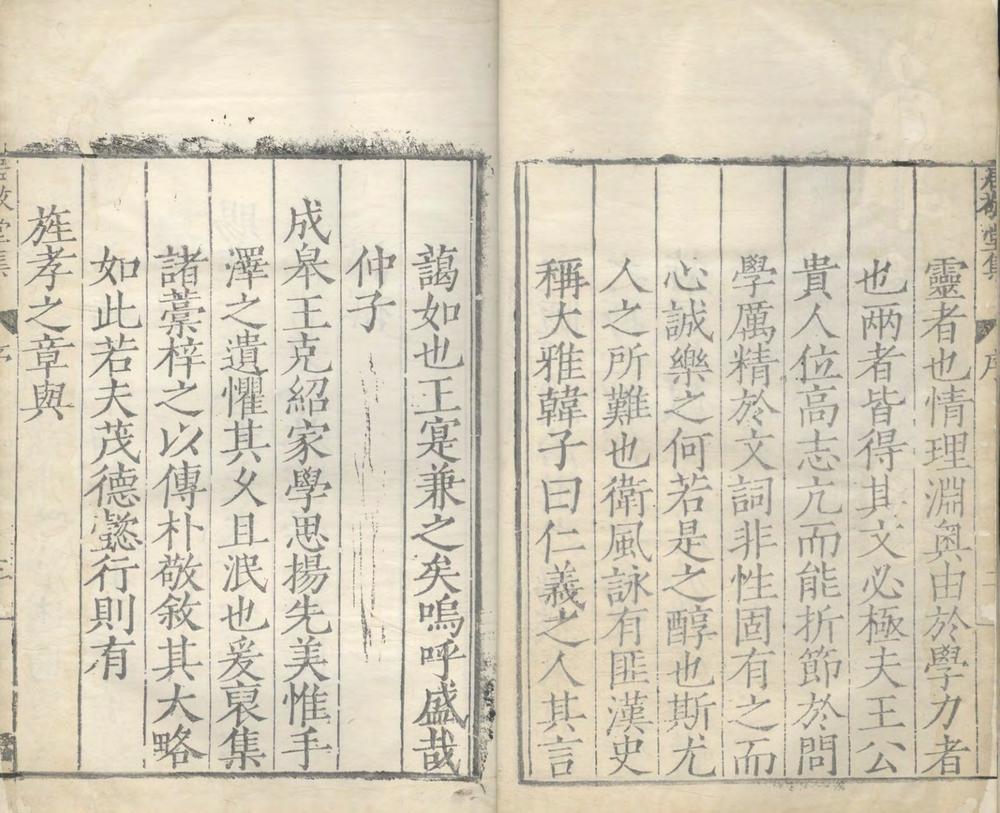 靈者也情理淵奧由於學力者
也兩者皆得其文必極夫王公
貴人位高志亢而能折節於問
學厲精於文詞非性固有之而
心誠樂之何若是之醇也斯尤
人之所難也衛風詠有匪漢史
稱大雅韓子曰仁義之人其言
藹如也王寔兼之矣嗚呼盛哉
仲子
成皋王克紹家學思揚先美惟手
澤之遺懼其久且泯也爰裒集
諸藁梓之以傳朴敬敘其大略
如此若夫茂德懿行則有
旌孝之章與
堂集
序